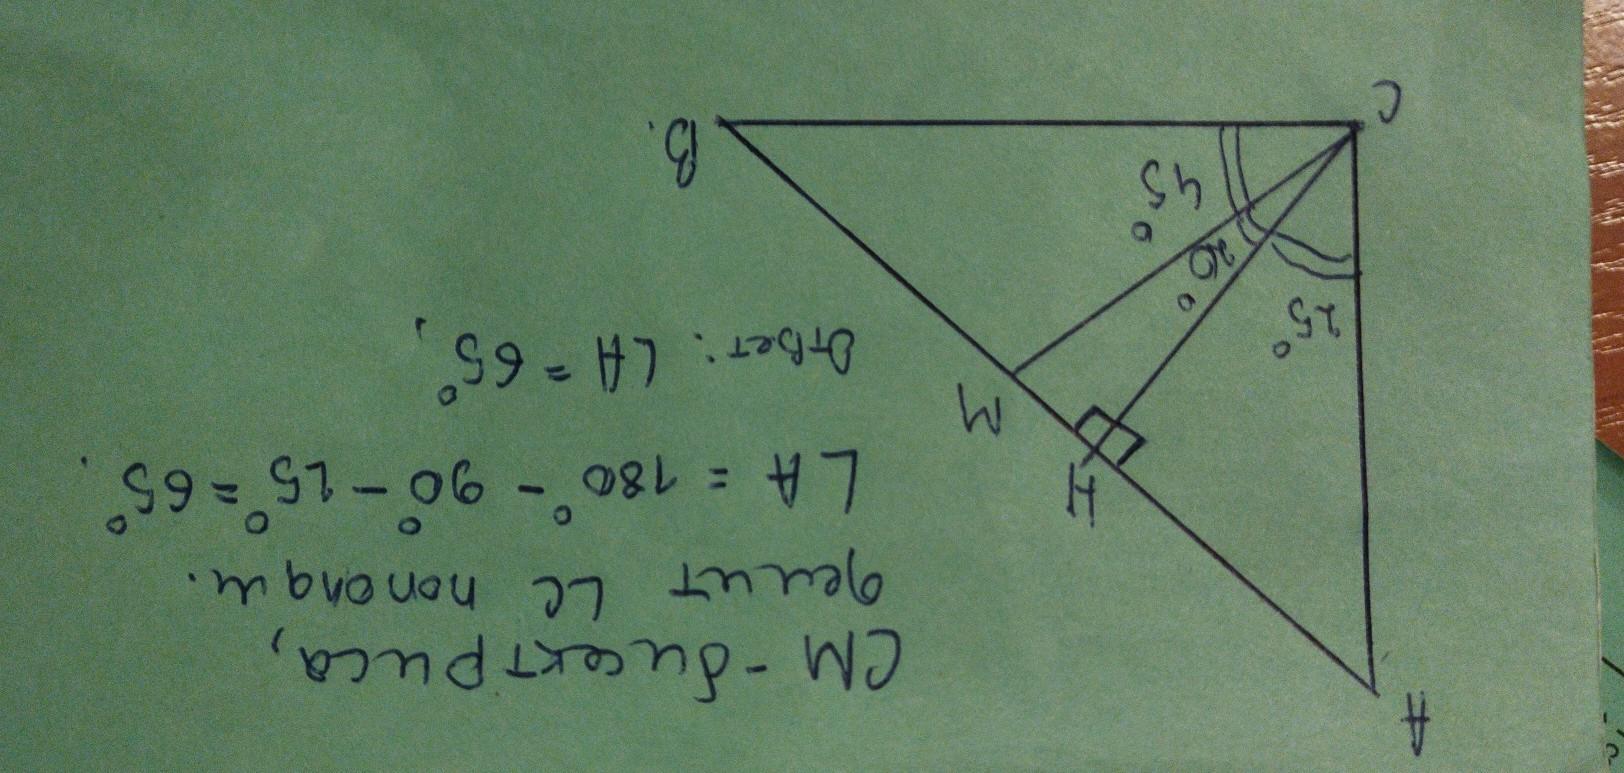 A
CM - бисектриса,
делит ∠C пополам.
∠A = 180° - 90° - 25° = 65°.
Ответ: ∠A = 65°,
H
M
25°
20°
45°
C
B.